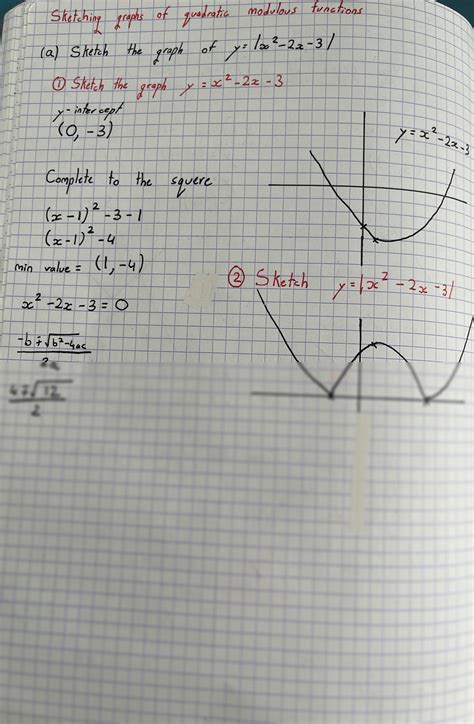 Sketching graphs of quadratic modulous functions
(a) Sketch the graph of y = |x² - 2x - 3|
① Sketch the graph y = x² - 2x - 3
y-intercept
(0, -3)
y = x² - 2x - 3
Complete to the squere
(x - 1)² - 3 - 1
(x - 1)² - 4
min value = (1, -4)
② Sketch y = |x² - 2x - 3|
x² - 2x - 3 = 0
-b ∓ √b² - 4ac
2a
4 ∓ √12
2